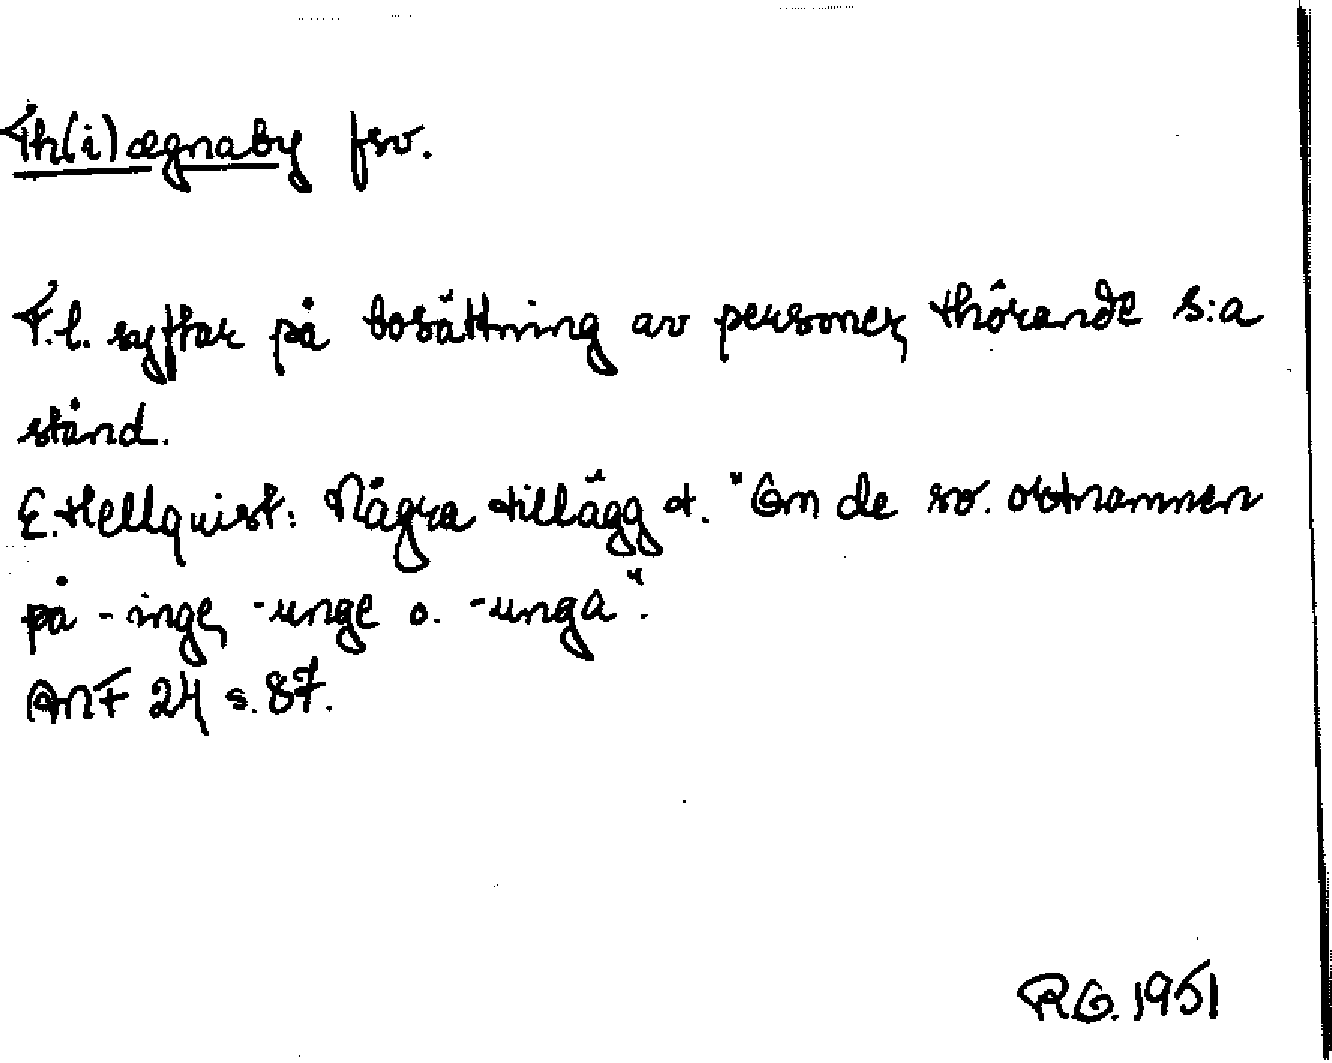 Th(i)ægnaby fsv.
F.l. syftar på bosättning av personer, thörande s:a
stånd.
E. Hellquist: Några tillägg t. "Om de sv. ortnamnen
på -inge, -unge o. -unga".
ANF 24 s. 87.
R.G. 1951